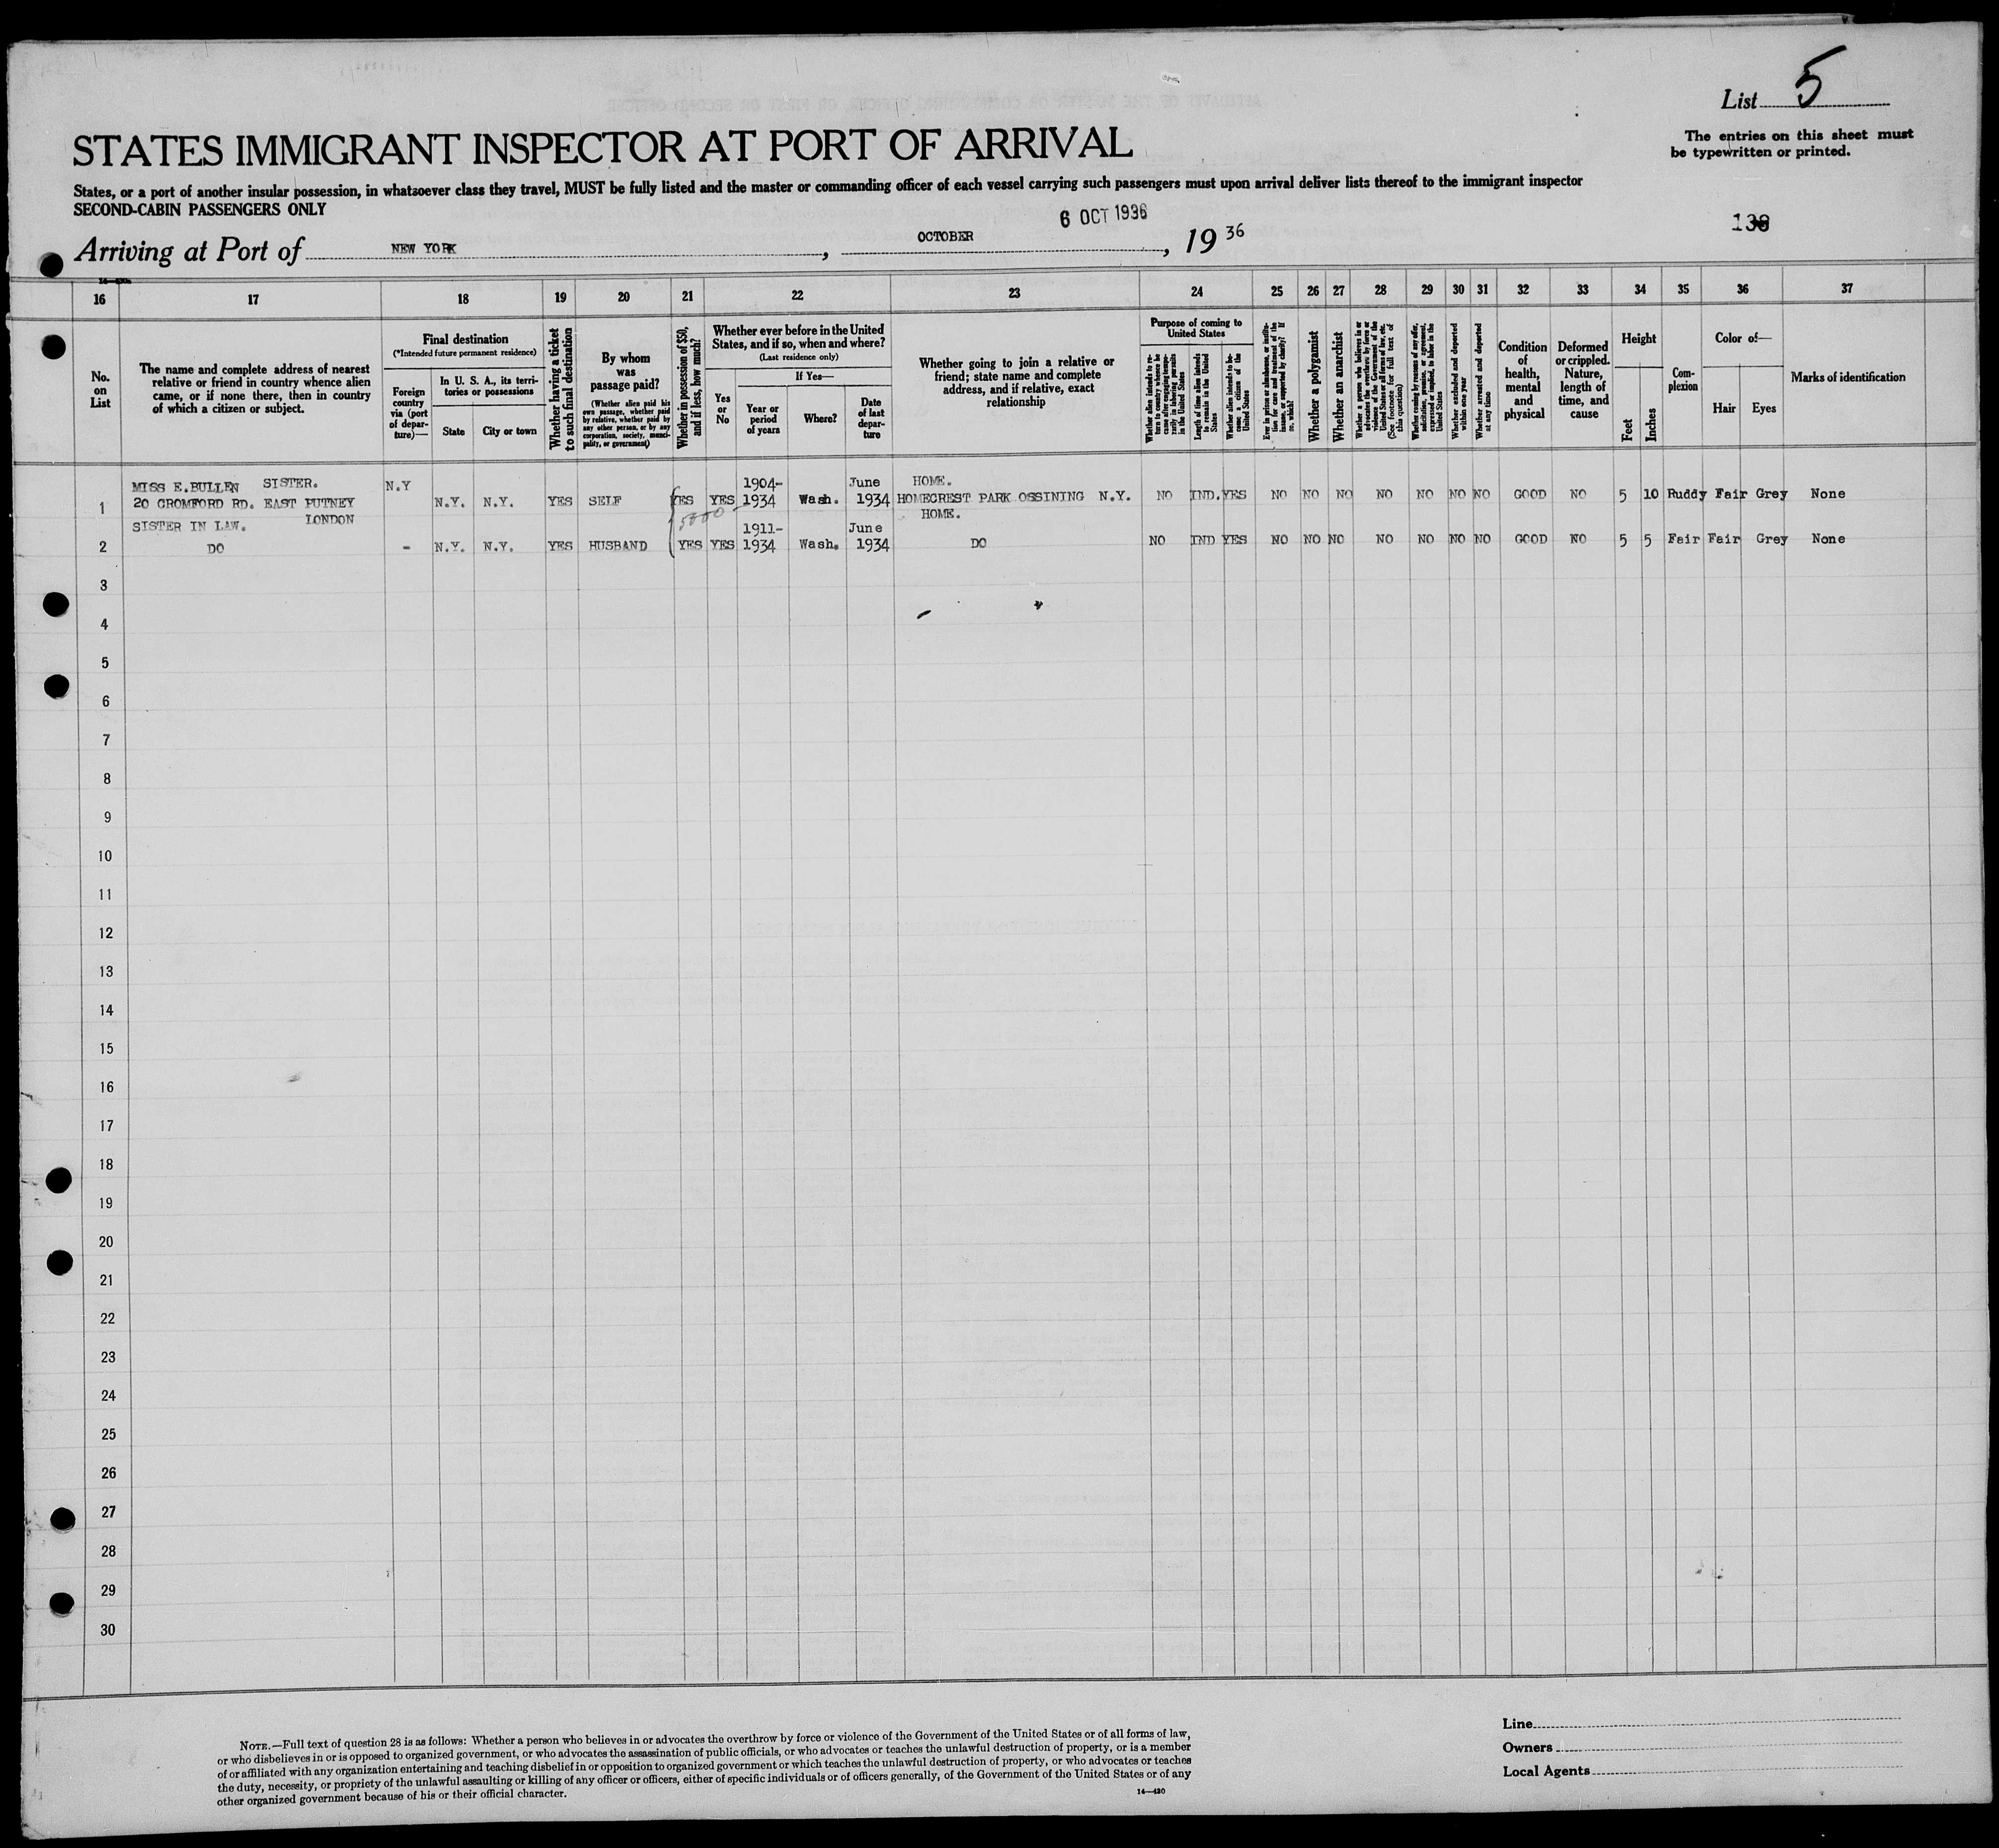 List 5
The entries on this sheet must
be typewritten or printed.
STATES IMMIGRANT INSPECTOR AT PORT OF ARRIVAL
States, or a port of another insular possession, in whatsoever class they travel, MUST be fully listed and the master or commanding officer of each vessel carrying such passengers must upon arrival deliver lists thereof to the immigrant inspector
SECOND-CABIN PASSENGERS ONLY
6 OCT 1936
Arriving at Port of NEW YORK, OCTOBER, 1936
16 17 18 19 20 21 22 23 24 25 26 27 28 29 30 31 32 33 34 35 36 37
No. on List
The name and complete address of nearest
relative or friend in country whence alien
came, or if none there, then in country
of which a citizen or subject.
Final destination
(*Intended future permanent residence)
Foreign
country
via (port
of depar-
ture)—
In U. S. A., its terri-
tories or possessions
State
City or town
Whether having a ticket
to such final destination
By whom
was
passage paid?
(Whether alien paid his
own passage, whether paid
by relative, whether paid by
any other person, or by any
corporation, society, munici-
pality, or government)
Whether in possession of $50,
and if less, how much?
Whether ever before in the United
States, and if so, when and where?
(Last residence only)
Yes
or
No
If Yes—
Year or
period
of years
Where?
Date
of last
depar-
ture
Whether going to join a relative or
friend; state name and complete
address, and if relative, exact
relationship
Purpose of coming to
United States
Whether alien intends to re-
turn to country whence he
came after engaging tempo-
rarily in laboring pursuits
in the United States
Length of time alien intends
to remain in the United
States
Whether alien intends to be-
come a citizen of the
United States
Ever in prison or almshouse, or institu-
tion for care and treatment of the
insane, or supported by charity? If
so, which?
Whether a polygamist
Whether an anarchist
Whether a person who believes in or
advocates the overthrow by force or
violence of the Government of the
United States or all forms of law, etc.
(See footnote for full text of
this question)
Whether coming by reason of any offer,
solicitation, promise, or agreement,
expressed or implied, to labor in the
United States
Whether excluded and deported
within one year
Whether arrested and deported
at any time
Condition
of
health,
mental
and
physical
Deformed
or crippled.
Nature,
length of
time, and
cause
Height
Feet
Inches
Com-
plexion
Color of—
Hair
Eyes
Marks of identification
MISS E.BULLEN SISTER. N.Y 1904- June HOME.
1 20 CROMFORD RD. EAST PUTNEY N.Y. N.Y. YES SELF YES YES 1934 Wash. 1934 HOMECREST PARK OSSINING N.Y. NO IND. YES NO NO NO NO NO NO NO GOOD NO 5 10 Ruddy Fair Grey None
LONDON 5000 HOME.
SISTER IN LAW. 1911- June
2 DO - N.Y. N.Y. YES HUSBAND YES YES 1934 Wash. 1934 DO NO IND YES NO NO NO NO NO NO NO GOOD NO 5 5 Fair Fair Grey None
3
4
5
6
7
8
9
10
11
12
13
14
15
16
17
18
19
20
21
22
23
24
25
26
27
28
29
30
NOTE.—Full text of question 28 is as follows: Whether a person who believes in or advocates the overthrow by force or violence of the Government of the United States or of all forms of law,
or who disbelieves in or is opposed to organized government, or who advocates the assassination of public officials, or who advocates or teaches the unlawful destruction of property, or is a member
of or affiliated with any organization entertaining and teaching disbelief in or opposition to organized government or which teaches the unlawful destruction of property, or who advocates or teaches
the duty, necessity, or propriety of the unlawful assaulting or killing of any officer or officers, either of specific individuals or of officers generally, of the Government of the United States or of any
other organized government because of his or their official character.
14—420
Line
Owners
Local Agents